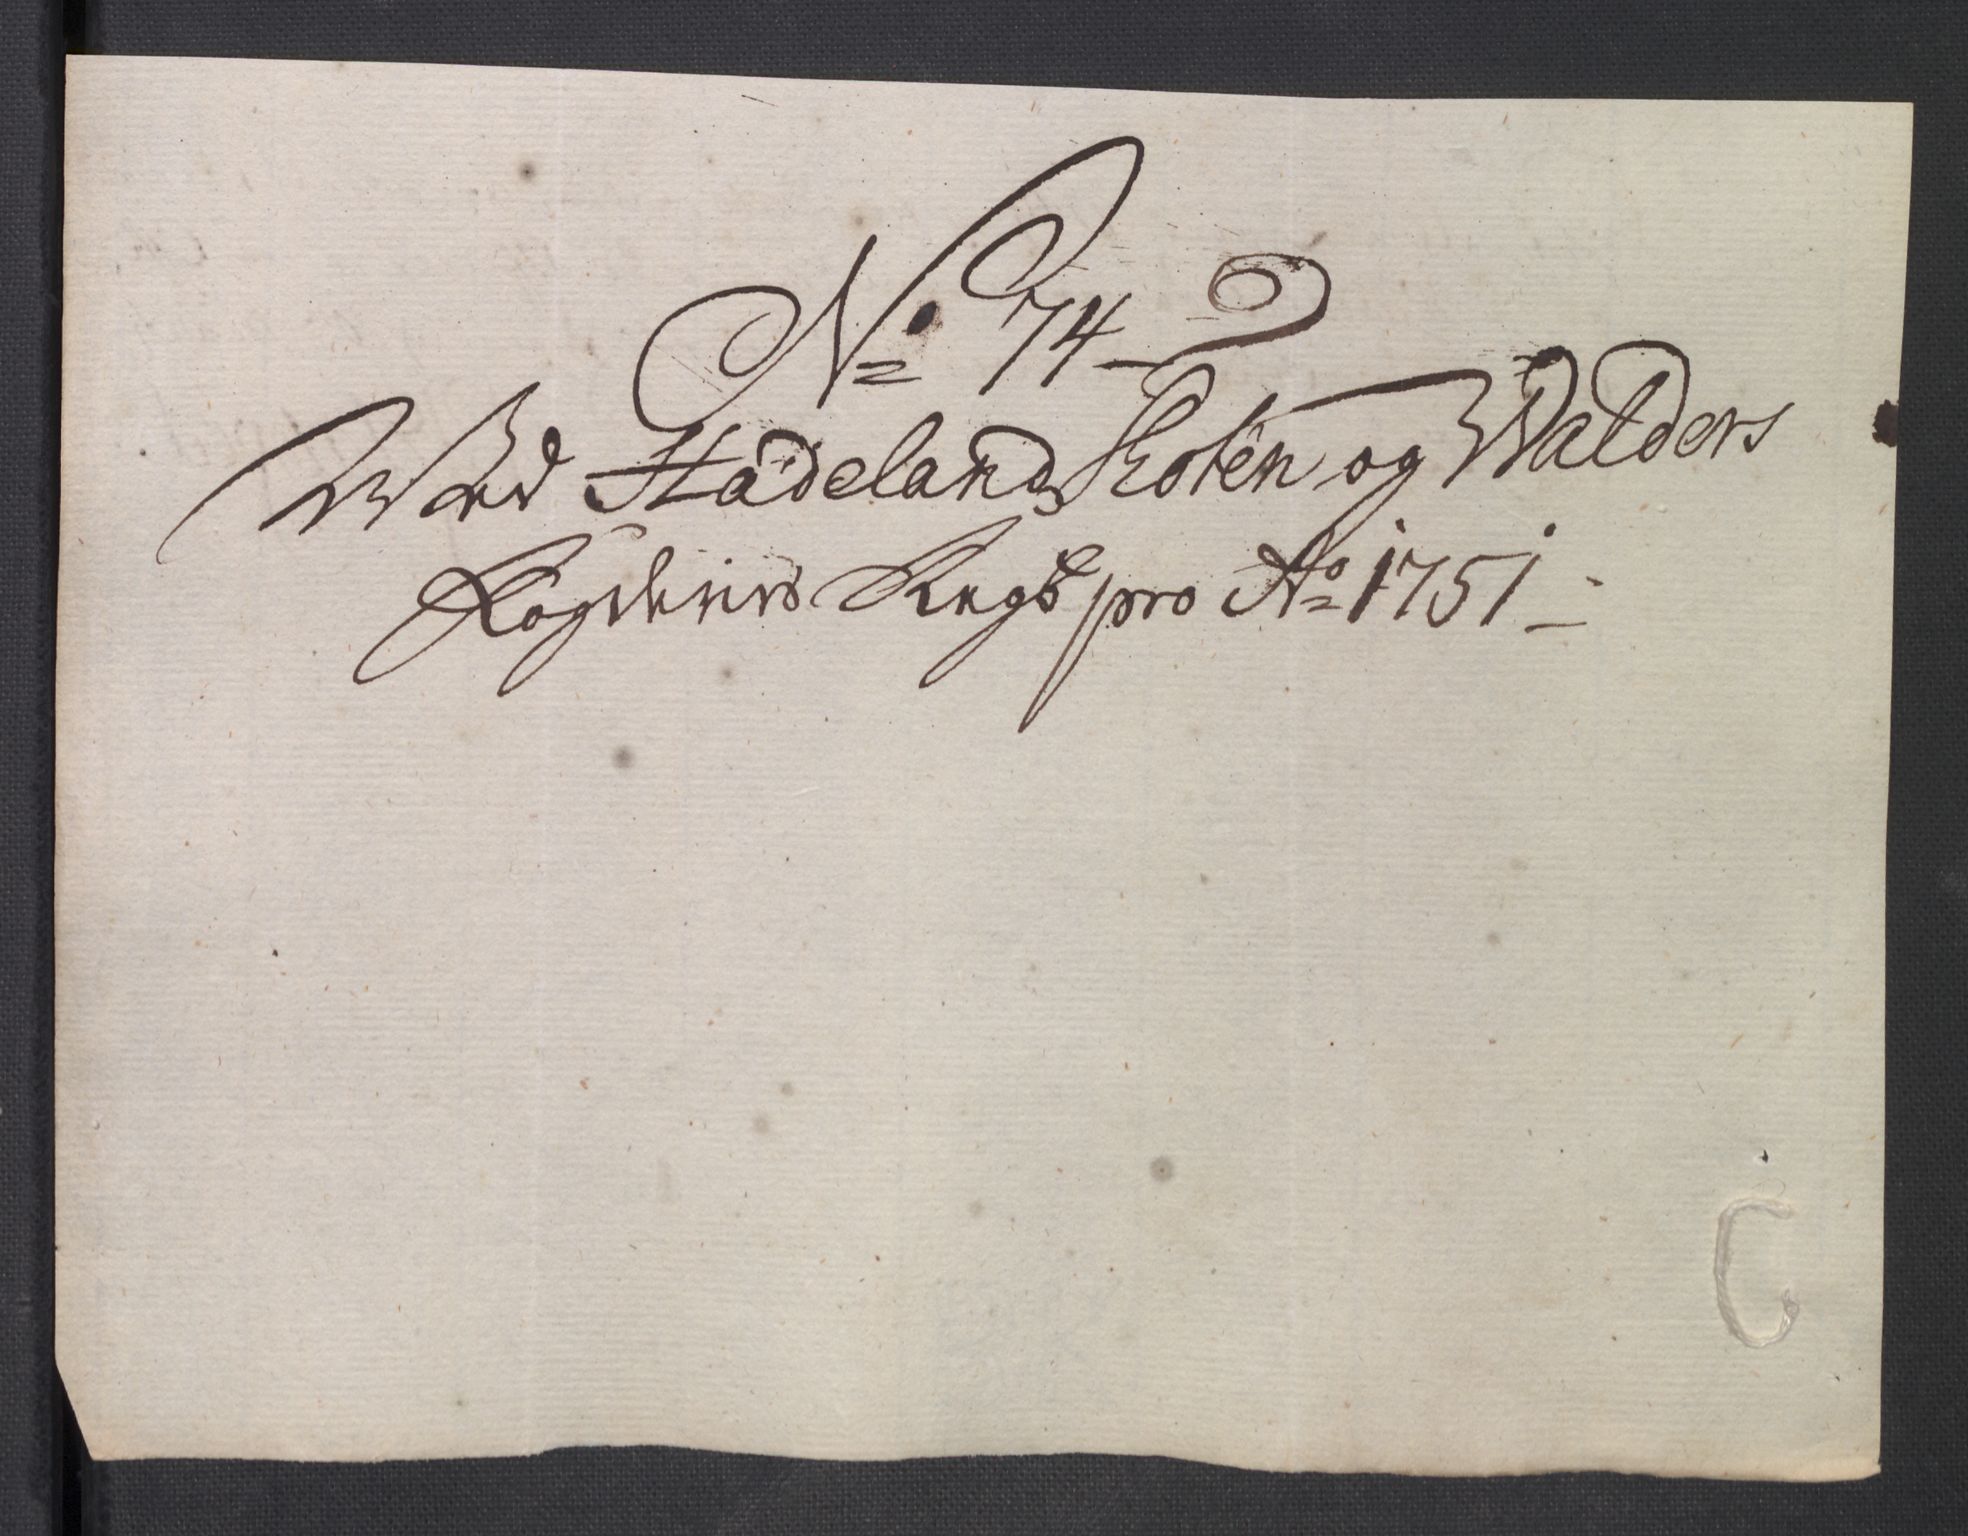 No 74
Ved Hadeland Toten og Walders
Fogderies Regsk pro Ao 1751